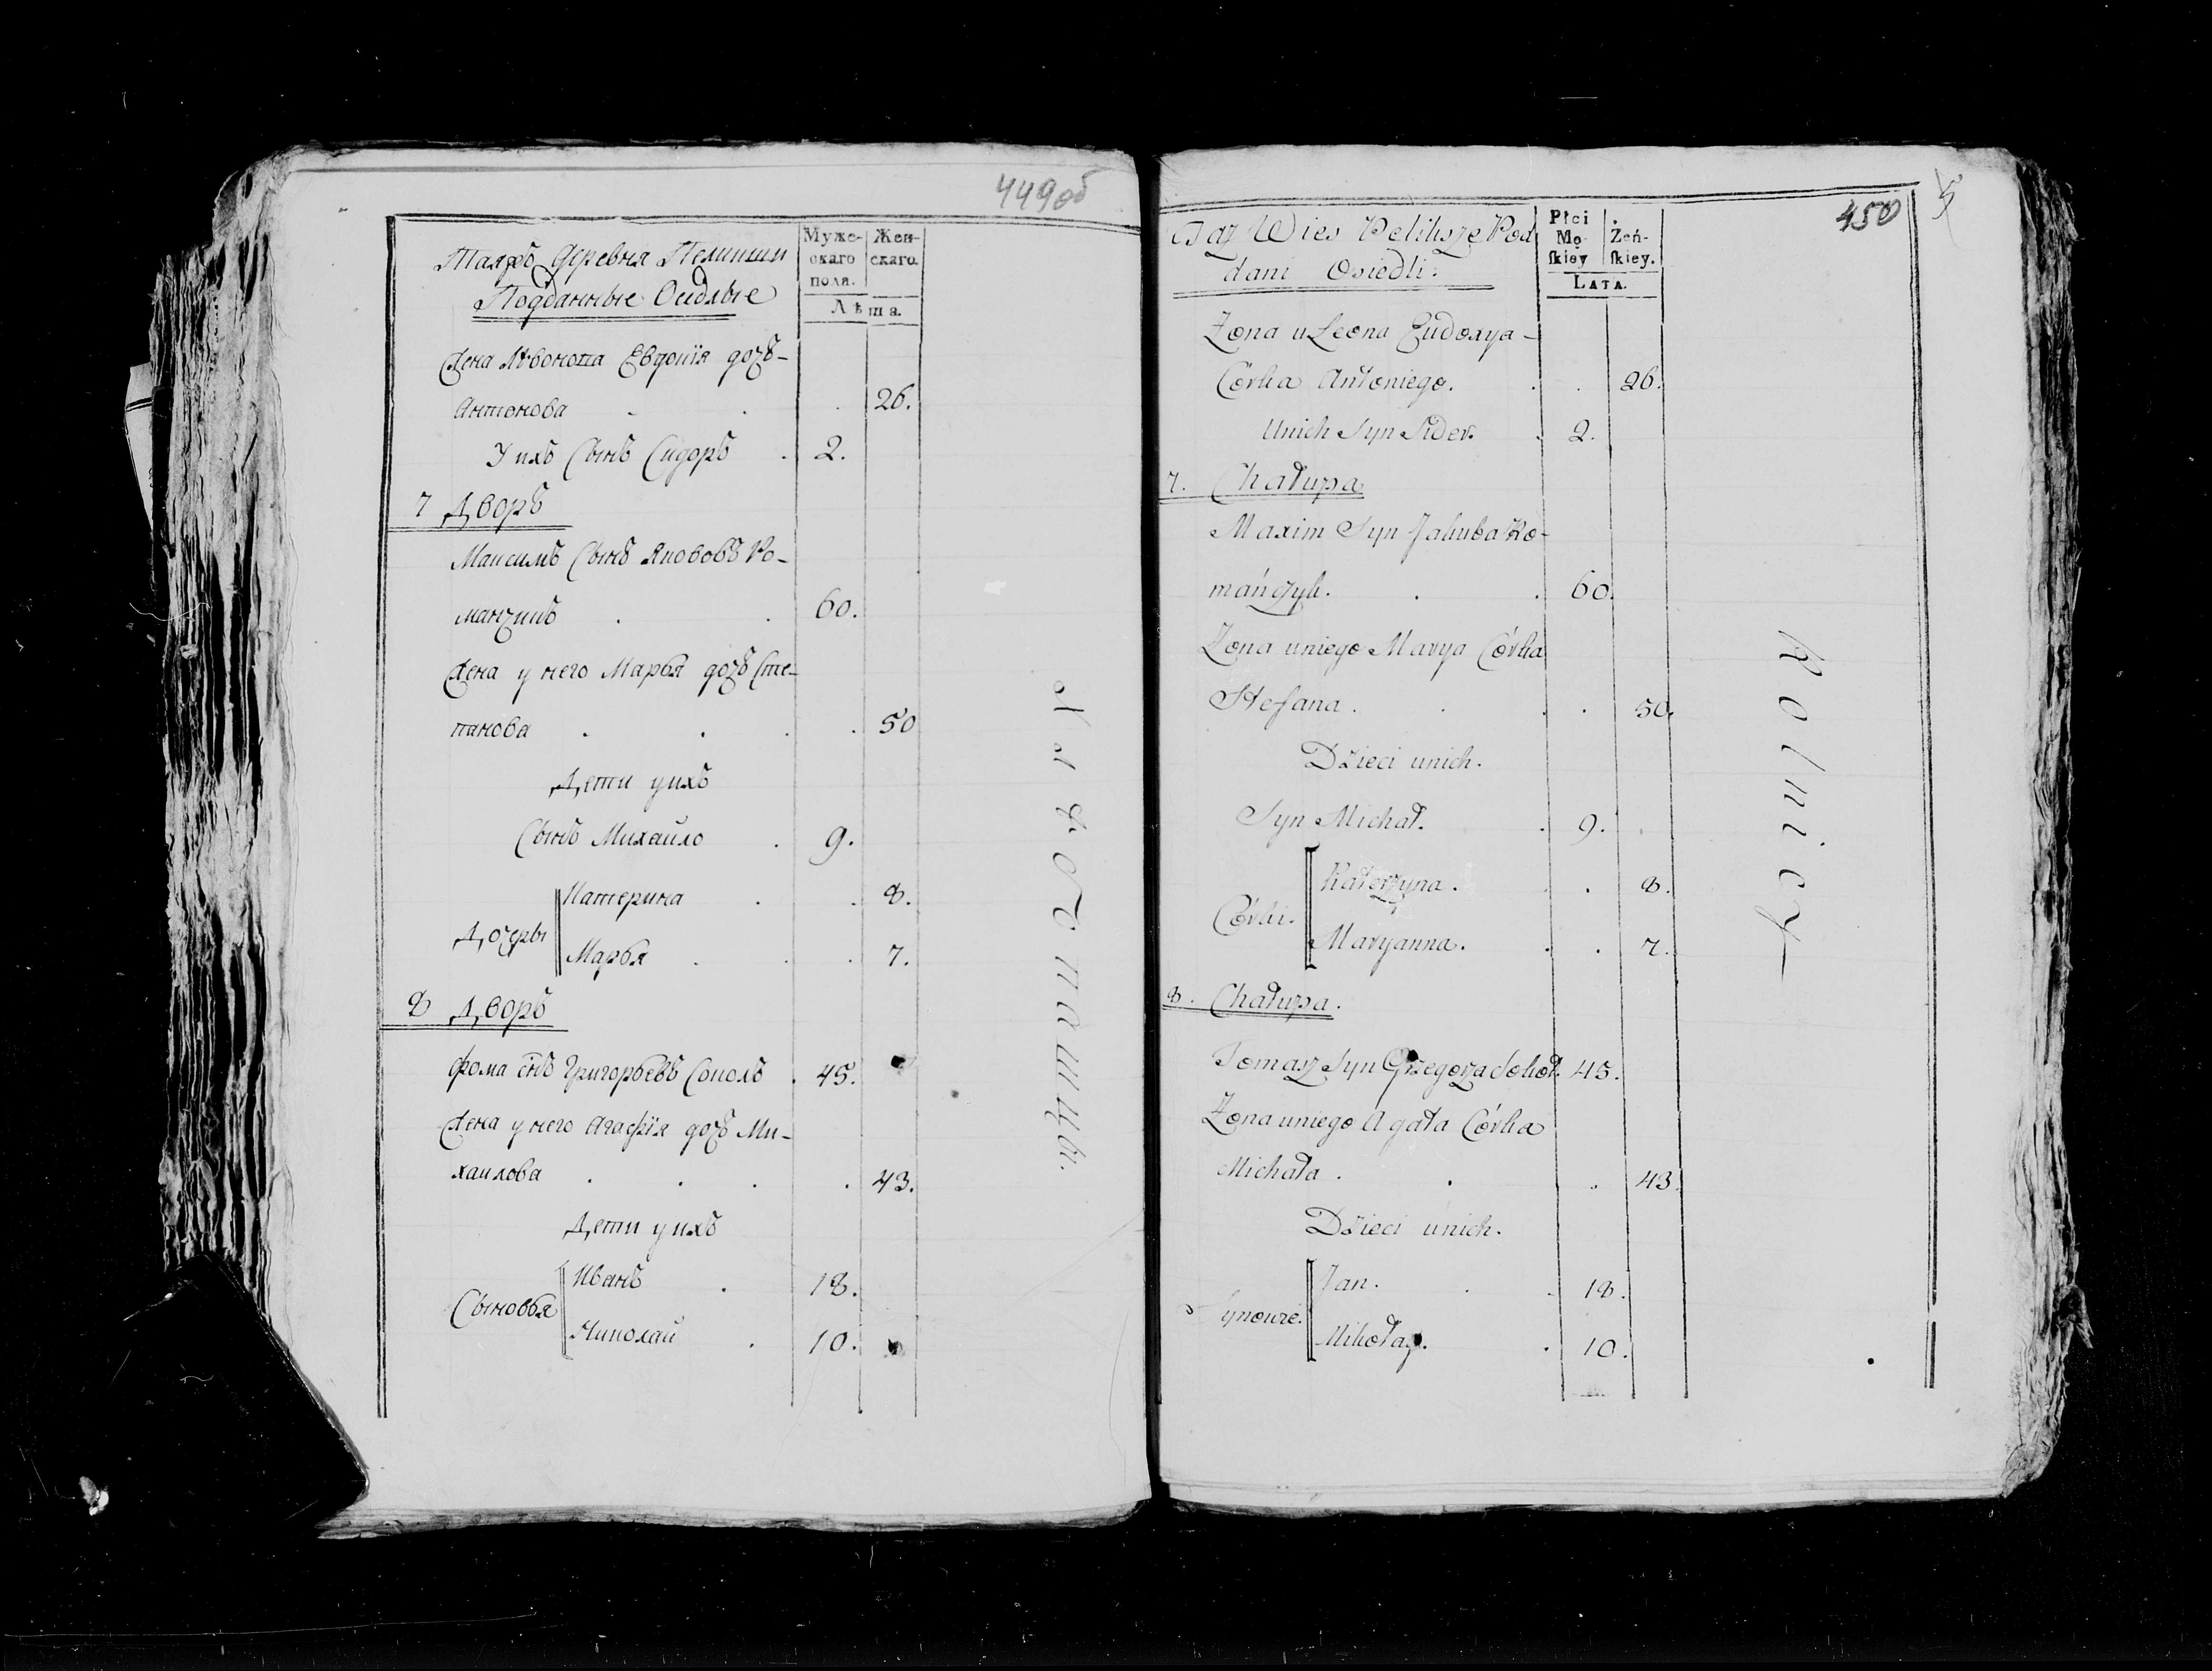 449об
Таяжъ Деревня Пелищи
Подданные Осидлые
Муже-
скаго
пола.
Жен-
скаго.
Лѣта.
Жена Лѣвонова Евдокія дочъ-
Антонова 26.
У ихъ Сынъ Сидоръ 2.
7 Дворъ
Максимъ Сынъ Яковъ Ро-
манчикъ 60.
Жена у него Марья дочъ Сте-
панова 50
Дети у ихъ
Сынъ Михайло 9.
Дочеры
Катерина 8.
Марья 7.
8 Дворъ
Фома снъ Григорьевъ Соколъ 45.
Жена у него Агафія дочъ Ми-
хаилова 43.
Дети у ихъ
Сыновья
Иванъ 18.
Николай 10.
450
5
Taż Wies Peliksze Pod
dani Osiedli.
Płci
Mę-
skiey
Żeń-
skiey.
Lata.
Zona u Leona Eudoxya-
Córka Antoniego. 26.
Unich Syn Sider. 2.
7. Chałupa
Maxim Syn Jakuba Ro-
mańczyk. 60.
Zona uniego Marya Córka
Stefana. 50.
Dzieci unich.
Syn Michał. 9.
Córki.
Katerzyna. 8.
Maryanna. 7.
8. Chałupa.
Tomasz Syn Grzegorza Sokoł. 45.
Zona uniego Agata Córka
Michała. 43.
Dzieci unich.
Synowie.
Jan. 18.
Mikołay. 10.
Rolnicy